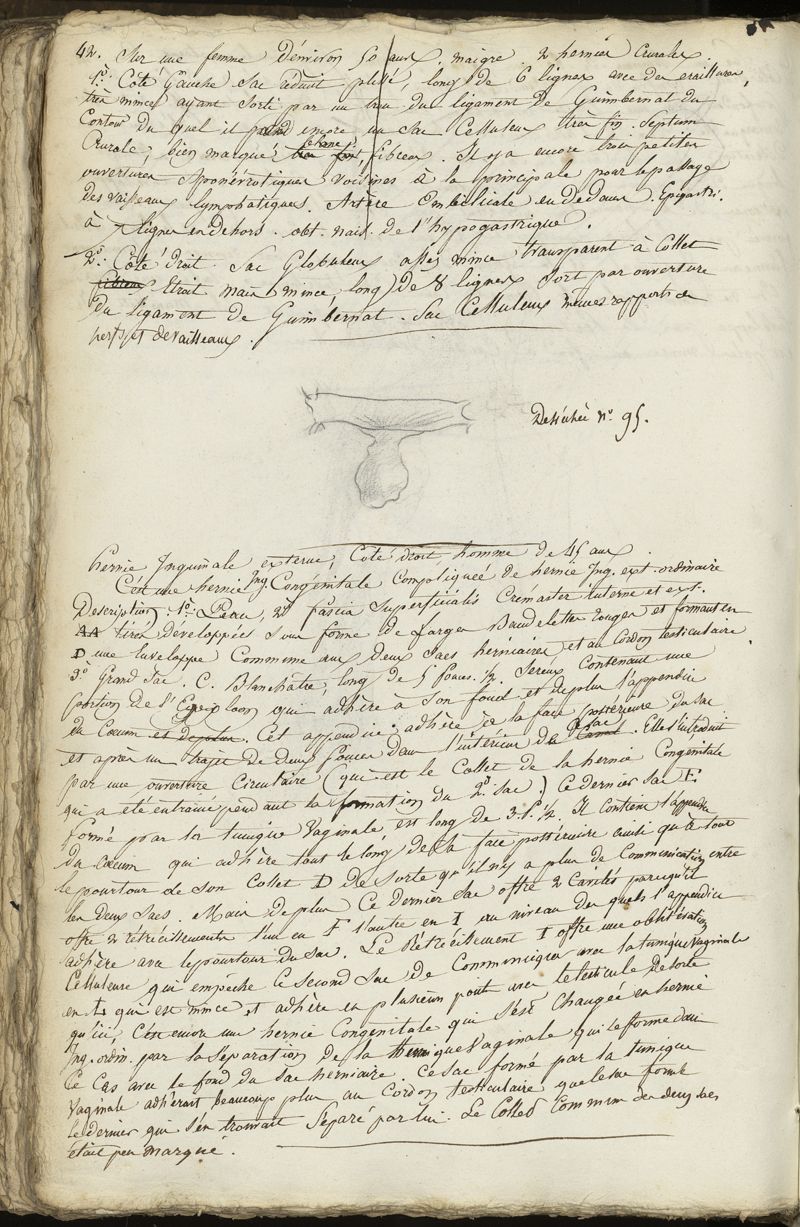 42. Sur une femme d'environ 50 ans, maigre 2 hernies Crurales.
1º Côté Gauche Sac réduit plissé, long de 6 lignes avec des éraillures,
très mince, ayant Sorti par un trou du ligament de Guimbernat du
Contour du quel il prend encore un Sac Celluleux très fin. Septum
Crurale, bien marqué, fibreux. Il y a encore trois petites
ouvertures aponévrotiques voisines à la principale pour le passage
des vaisseaux lymphatiques. Artère Ombilicale en dedans. Epigastri.
à 7 lignes en dehors. obt. nais. de l'hypogastrique.
2º Côté droit Sac Globuleux assez mince transparent à Collet
fibreux Etroit mais mince, long de 8 lignes Sort par ouverture
du ligament de Guimbernat. Sac Celluleux mêmes rapports de
vaisseaux.
Desséchée nº 95.
Hernie Inguinale externe, Coté droit, homme de 45 ans.
C'est une hernie Ing. Congénitale Compliquée de hernie Ing. ext. ordinaire
Description. 1º Peau, 2º fascia Superficialis Cremaster interne et ext.
AA très développées Sous forme de Larges Bandelettes rouges et formant en
D une Enveloppe Commune aux deux Sacs herniaires et au Cordon testiculaire
3º Grand Sac. C. Blanchâtre, long de 5 pouces ½. Sereux Contenant une
portion de l'Epiploon qui adhère à Son fond et de plus l'appendice
du Cœcum et de plus. Cet appendice adhère à la face postérieure du sac
et après un trajet de deux pouces dans l'intérieur du sac. Elle s'introduit
par une ouverture Circulaire (qui est le Collet de la hernie Congenitale
qui a été entrainé pendant la formation du 2º sac.) Ce dernier Sac E.
formé par la tunique Vaginale, est long de 3. p. ½. Il Contient l'appendice
du Cœcum qui adhère tout le long de la face postérieure ainsi qu'à tout
le pourtour de son Collet D de Sorte qu'il n'y a plus de Communication entre
les deux Sacs. Mais de plus Ce dernier Sac offre 2 Cavités parcequ'il
offre 2 rétrécissements l'un en F l'autre en I au niveau des quels l'appendice
adhère avec le pourtour du Sac. Le Rétrécissement I offre une oblitération
Celluleuse qui empêche Ce second Sac de Communiquer avec la tunique Vaginale
en L qui est mince et adhère en plusieurs points avec le testicule de Sorte
qu'ici, C'est encore une hernie Congenitale qui S'est Changée en hernie
Ing. ordin. par la Séparation de la tunique Vaginale qui le forme dans
Ce Cas avec le fond du Sac herniaire. Ce sac formé par la tunique
Vaginale adhérait beaucoup plus au Cordon testiculaire que le sac formé
le dernier qui S'en trouvait Séparé par lui. Le Collet Commun des deux sacs
était peu marqué.